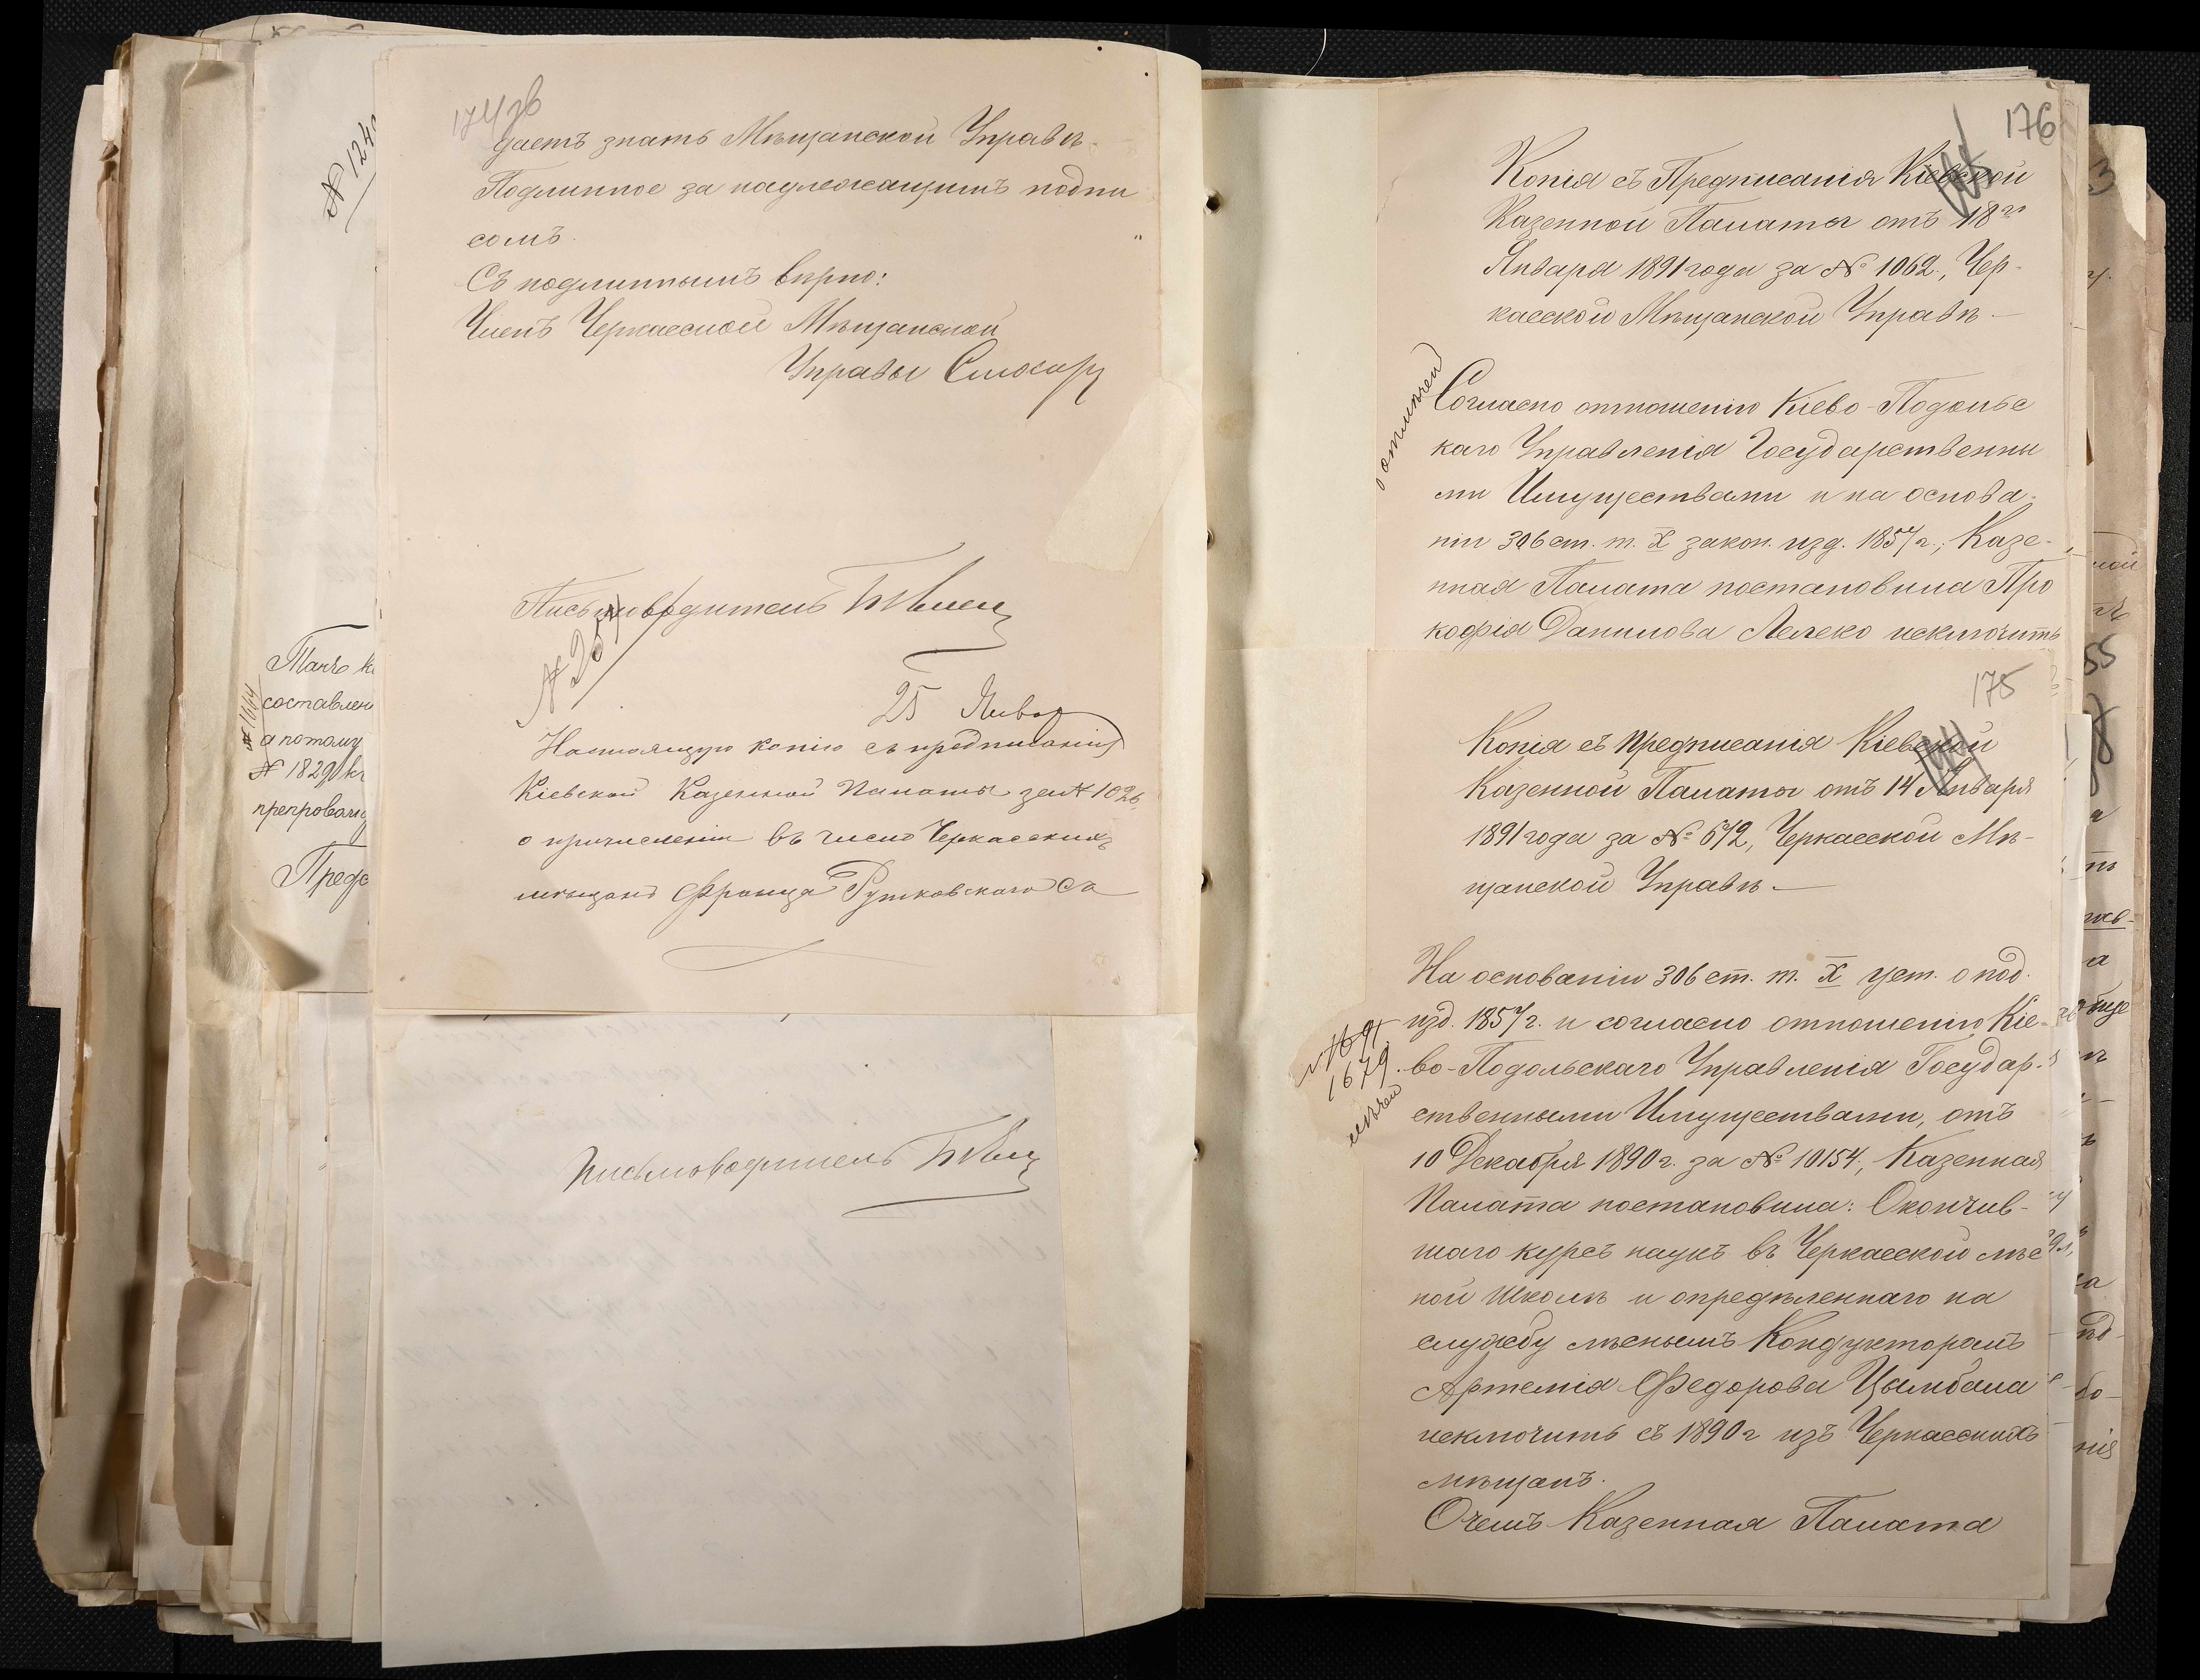 174 зв
даетъ знать Мѣщанской Управѣ.
Подлинное за надлежащимъ подпи
сомъ.
Съ подлиннымъ вѣрно:
Членъ Черкасской Мѣщанской
Управы Слюсарь
Письмоводитель
25 Январ
Настоящую копію съ предписанія
Кіевской Казенной Палаты за № 1026
о причисленіи въ число Черкасскихъ
мѣщанъ Франца Рутковскаго
Письмоводитель
№ 124
составлен
а потому
№ 1829
№ 1664
176
Копія съ Предписанія Кіевской
Казенной Палаты отъ 18го
Января 1891 года за № 1062, Чер-
касской Мѣщанской Управѣ.—
Согласно отношенію Кіево-Подольс
каго Управленія Государственны
ми Имуществами и на основа-
ніи 306 ст. т. X закон. изд. 1857 г., Казе-
нная Палата постановила Про
кофія Данилова Лелеко исключить
175
Копія съ предписанія Кіевской
Казенной Палаты отъ 14 Января
1891 года за № 672, Черкасской Мѣ-
щанской Управѣ.—
На основаніи 306 ст. т. X уст. о под.
изд. 1857 г. и согласно отношенію Кіе-
во-Подольскаго Управленія Государ-
ственными Имуществами, отъ
10 Декабря 1890 г. за № 10154, Казенная
Палата постановила: Окончив-
шаго курсъ наукъ въ Черкасской лѣс
ной школѣ и опредѣленнаго на
службу лѣснымъ Кондукторомъ
Артемія Федорова Цымбала
исключить съ 1890 г изъ Черкасскихъ
мѣщанъ.
О чемъ Казенная Палата
1679